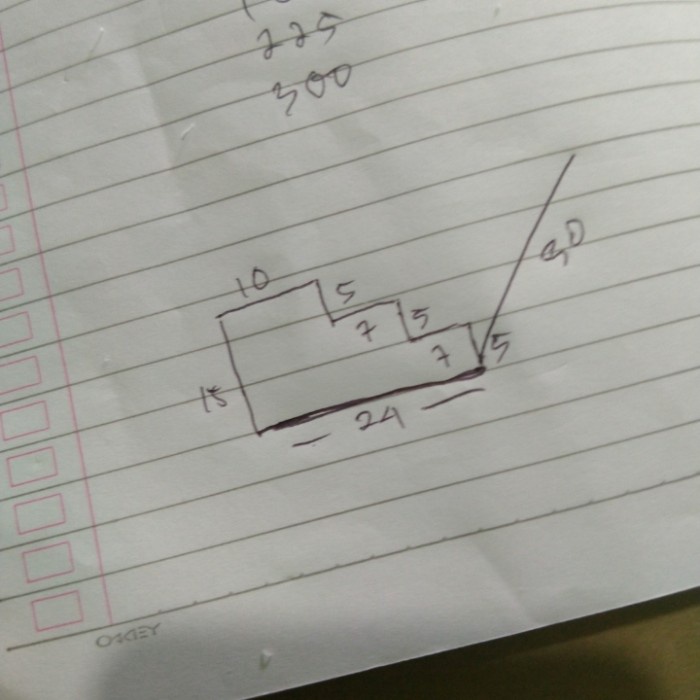 225
300
10
5
7
5
7
5
15
24
OKEY